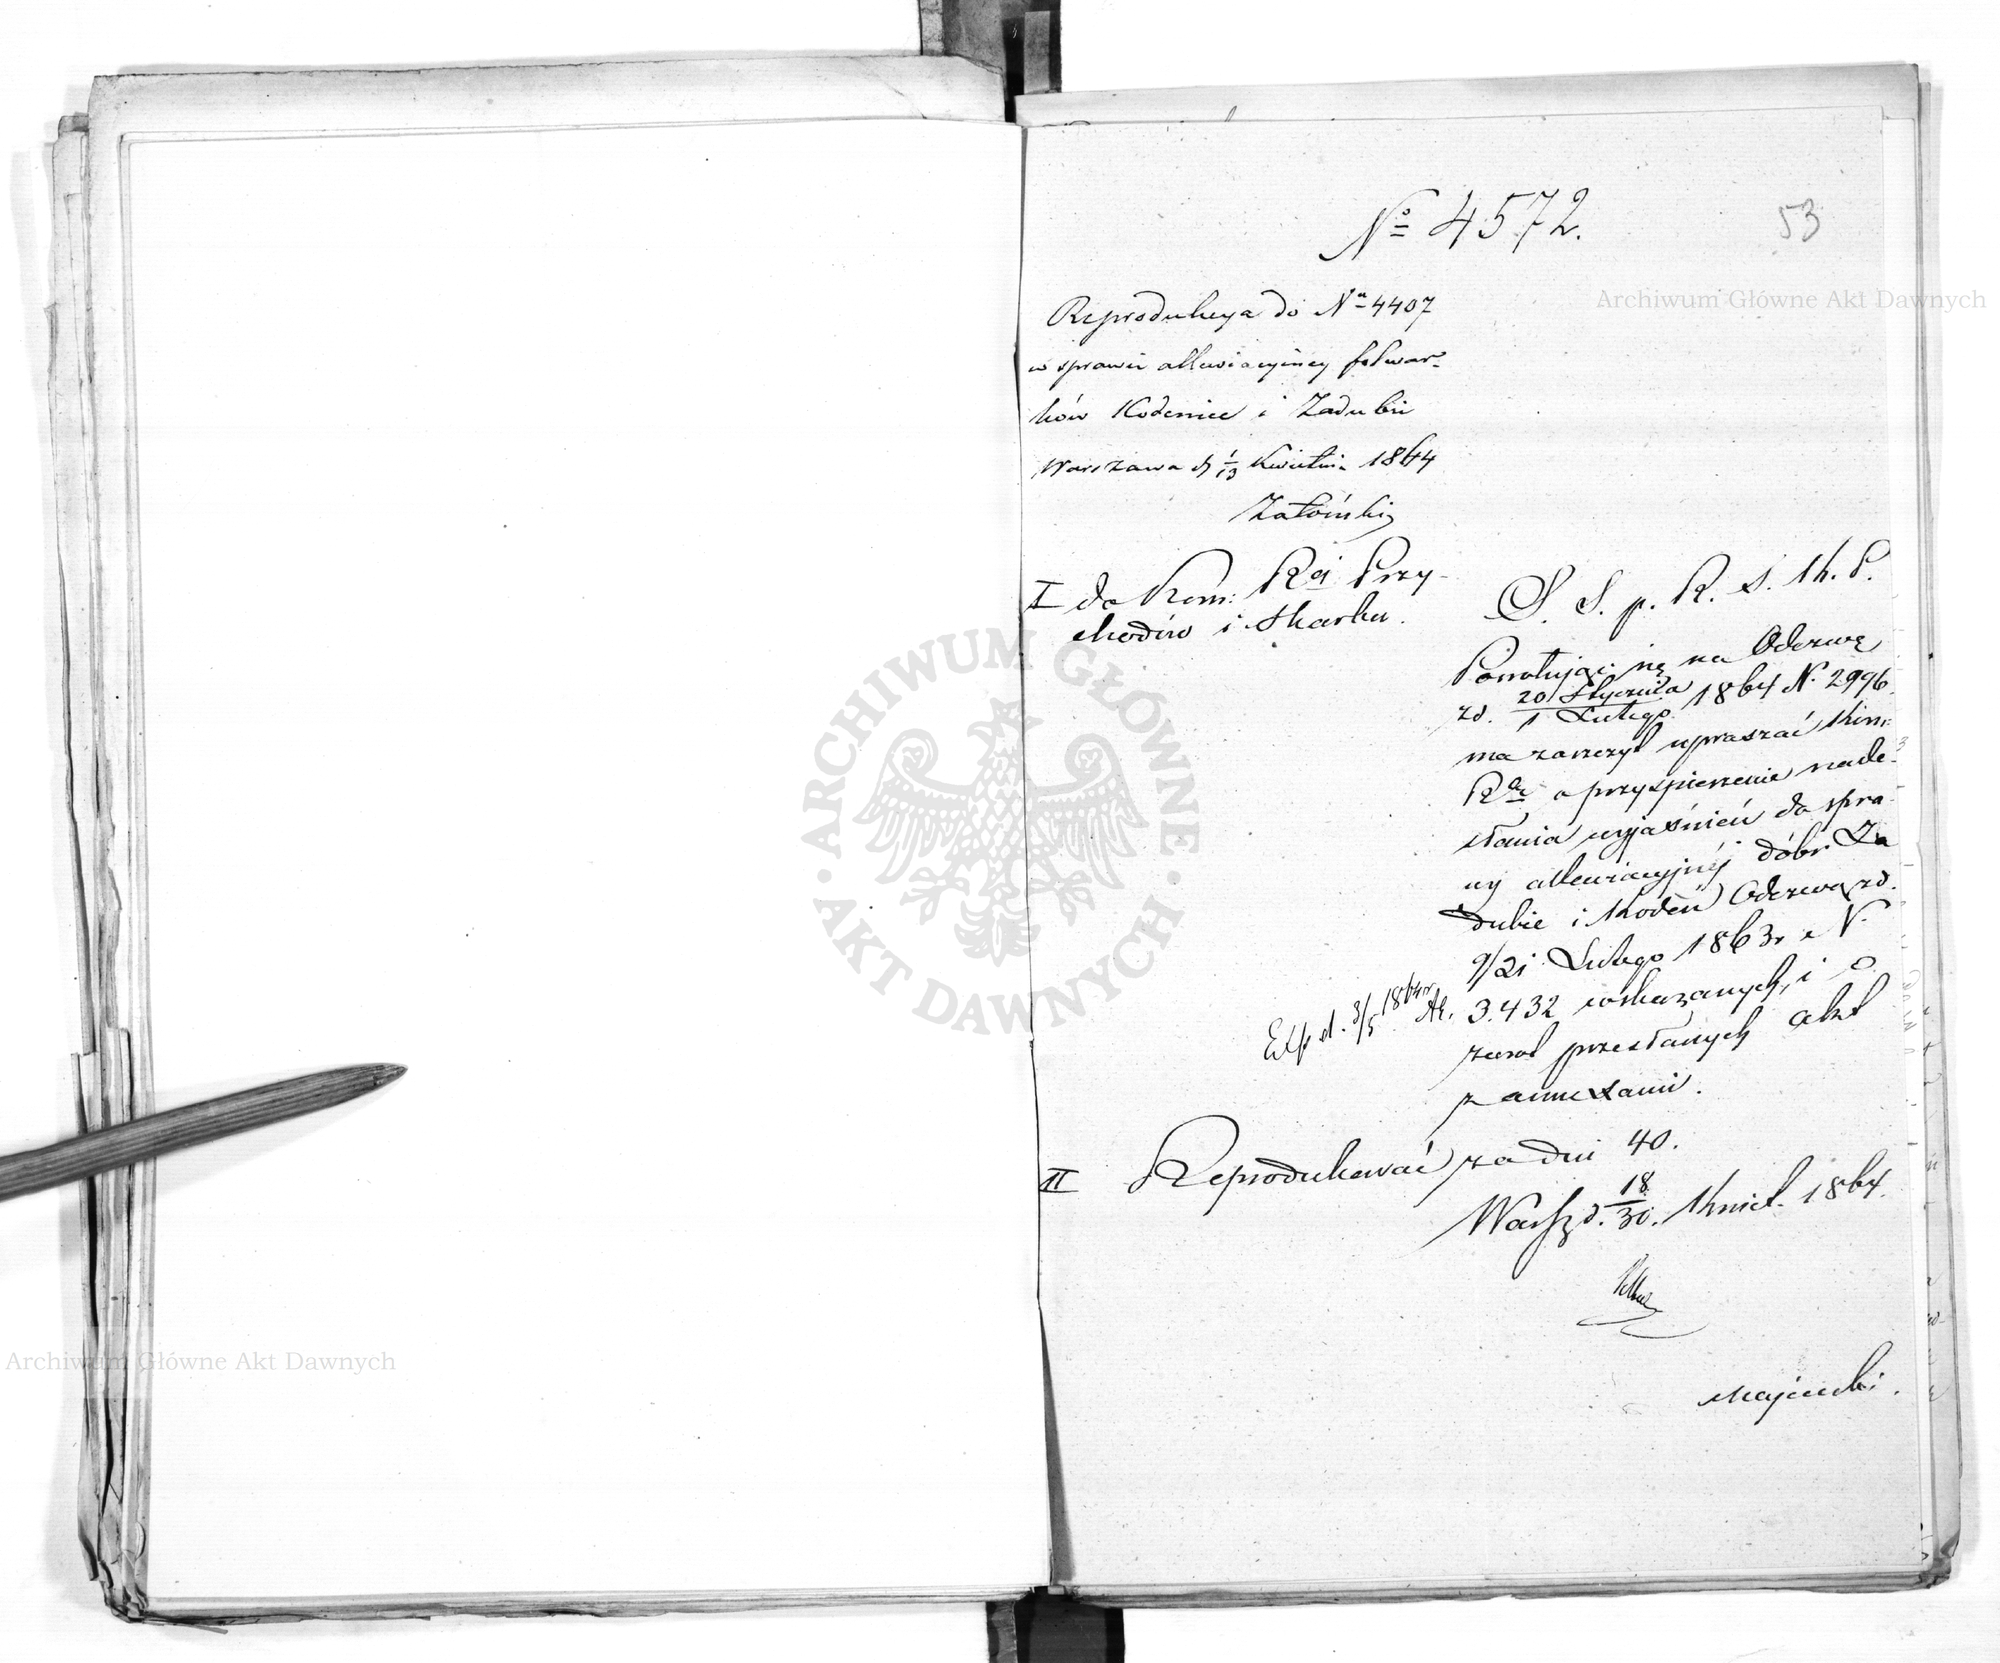 Nº 4572.
53
Reprodukcya do Nº 4407
w sprawie allewiacyinéy folwar-
ków Kodeniec i Zadubie
Warszawa d 1/13 Kwietnia 1864
I do Kom: Rej Przy-
chodów i Skarbu.
S. p. R. S. K. P.
Powołując się na Odezwę
zd. 20 Stycznia / 1 Lutego 1864 N. 2996.
ma zaszczyt upraszać Kom:
o przyspieszenie nade-
słania wyjaśnień do spra
wy allewiacyjnéj dóbr Za
dubie i Kodeń Odezwą zd.
9/21 Lutego 1863r. N.
3.432 wskazanych, i o
zwrot przesłanych akt
z annexami.
Exp d. 3/5 1864r.
II Reprodukować za dni 40.
Warsz d. 18/30. Kwiet. 1864.
Majewski.
Archiwum Główne Akt Dawnych
Archiwum Główne Akt Dawnych
ARCHIWUM GŁÓWNE
AKT DAWNYCH